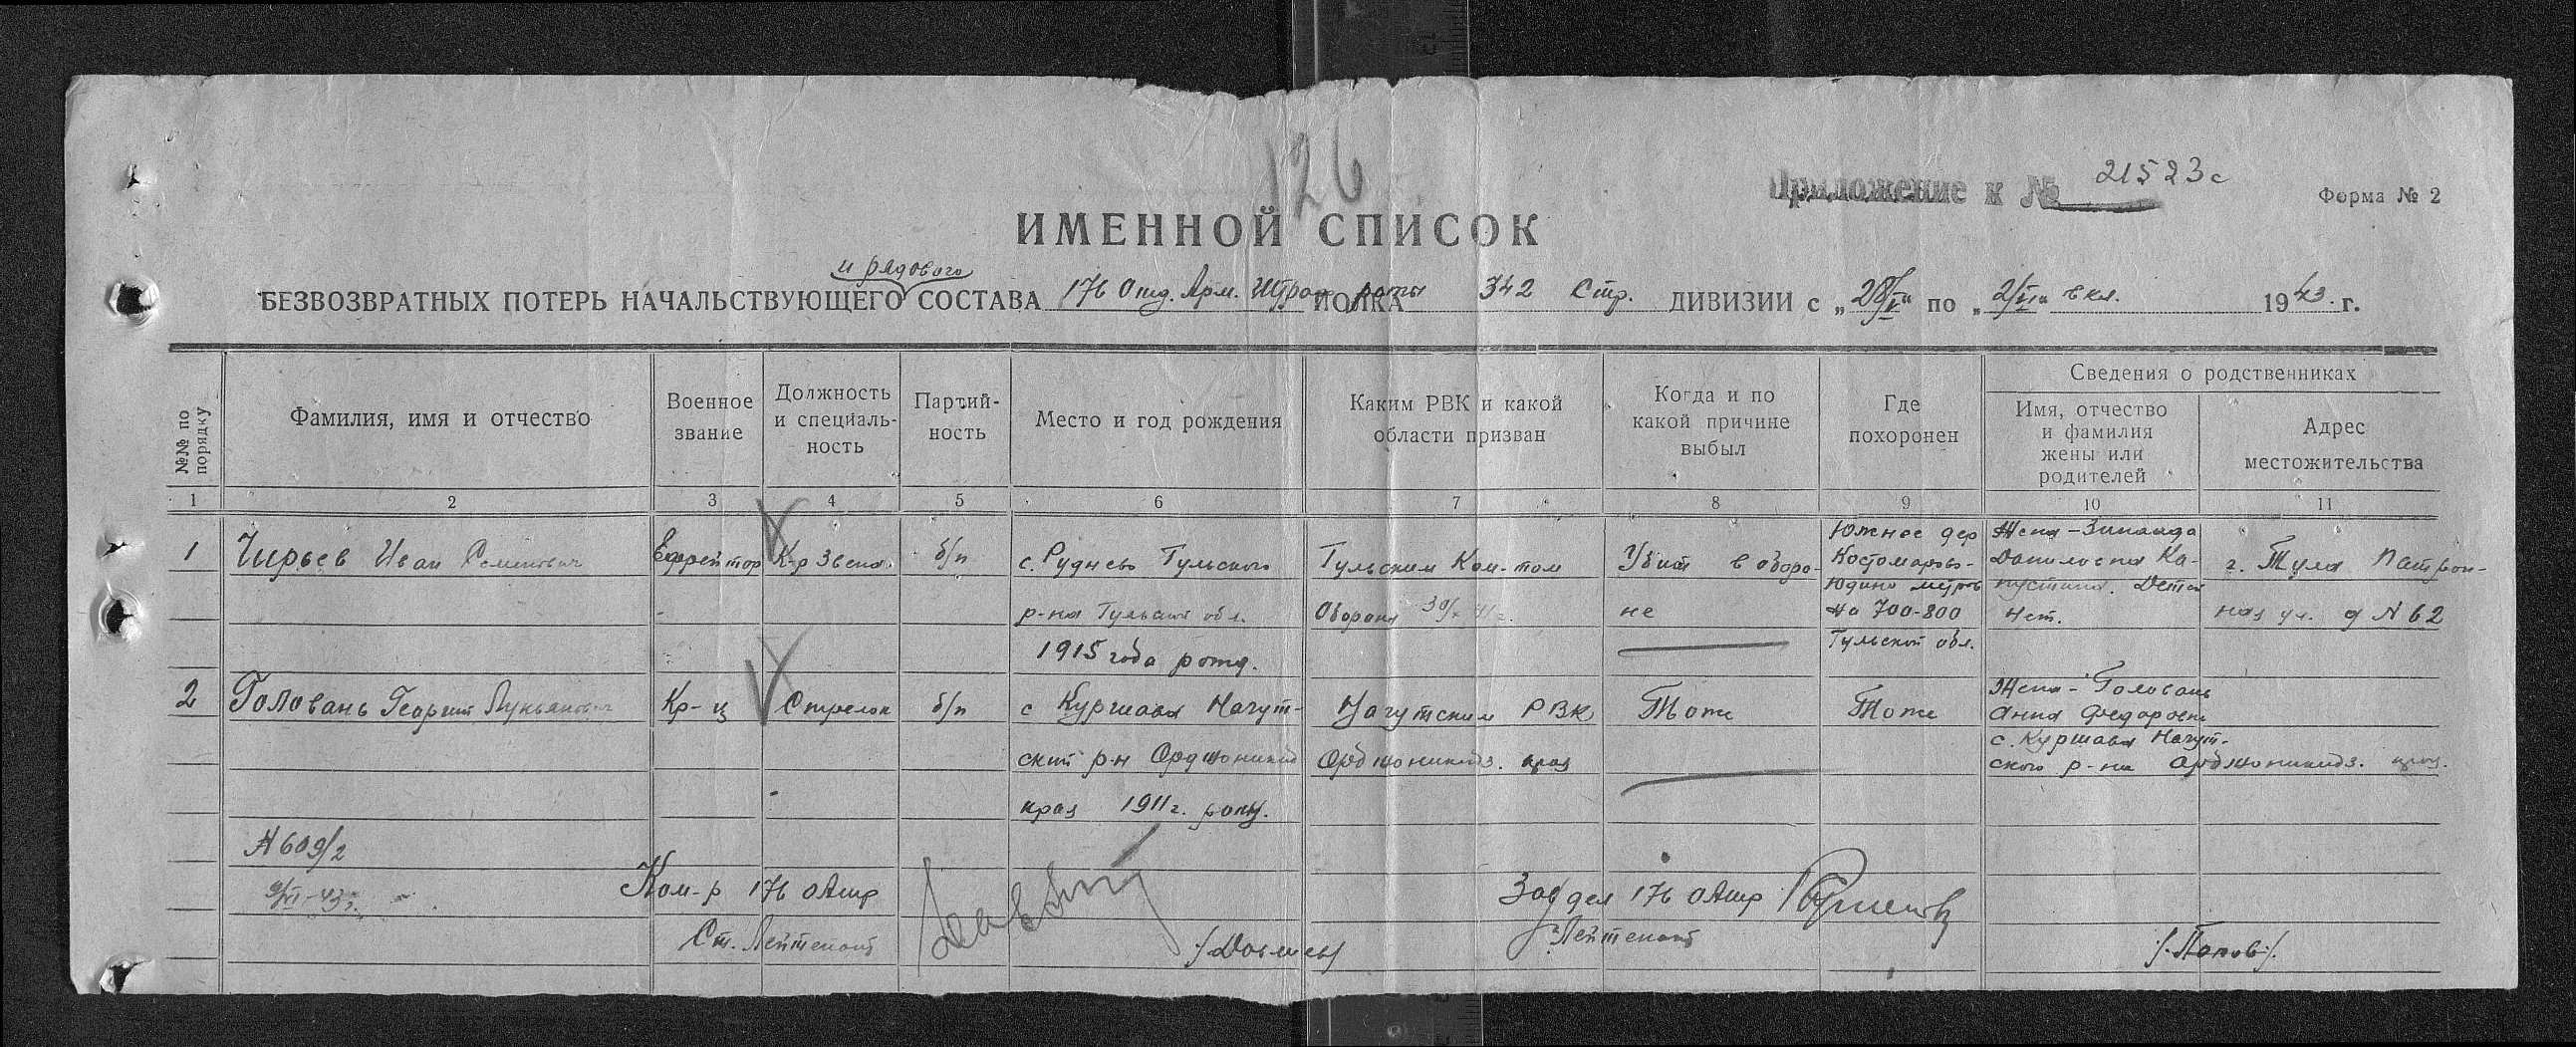 126
Приложение к № 21523с
Форма № 2
ИМЕННОЙ СПИСОК
и рядового
БЕЗВОЗВРАТНЫХ ПОТЕРЬ НАЧАЛЬСТВУЮЩЕГО СОСТАВА 176 Отд. Арм. Штраф роты ПОЛКА 342 Стр. ДИВИЗИИ с „28/V“ по „2/VI“ вкл. 1943 г.
№№ по порядку
Фамилия, имя и отчество
Военное звание
Должность и специальность
Партийность
Место и год рождения
Каким РВК и какой области призван
Когда и по какой причине выбыл
Где похоронен
Сведения о родственниках
Имя, отчество и фамилия жены или родителей
Адрес местожительства
1 2 3 4 5 6 7 8 9 10 11
Южнее дер Жена – Зинаида
1 Чирьев Иван Семенович Ефрейтор К-р Звена б/п с. Руднево Тульского Тульским Ком-том Убит в оборо- Костомарово- Даниловна Ка- г. Тула Патрон-
Юдино метров пустина. Детей
р-на Тульской обл. Обороны 30/X 41г. не на 700-800 нет. ная ул. д N 62
1915 года рожд. Тульской обл.
2 Головань Георгий Лукьянович Кр-ц Стрелок б/п с Куршава Нагут- Нагутским РВК Тоже Тоже Жена – Головань
Анна Федоровна
ский р-н Орджоникид Орджоникидз. край с. Куршава Нагут-
ского р-на Орджоникидз. край.
край 1911г. рожд.
N 609/2
9/VI-43г.
Ком-р 176 ОАшр Зав дел 176 ОАшр
Ст. Лейтенант Лейтенант /Попов/.